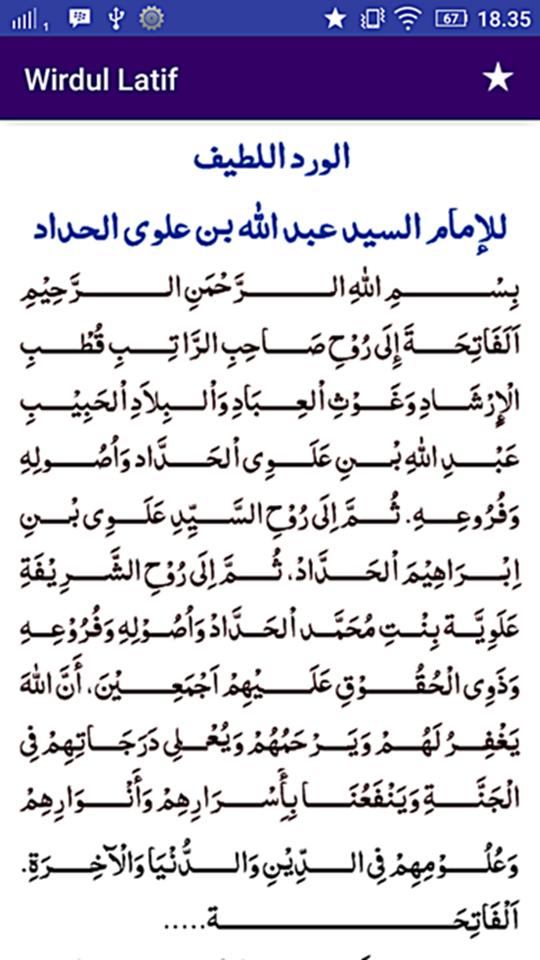 1 67 18.35
Wirdul Latif
الورد اللطيف
للإمام السيد عبد الله بن علوى الحداد
بِسْمِ اللهِ الرَّحْمَنِ الرَّحِيْمِ
اَلْفَاتِحَةَ إِلَى رُوْحِ صَاحِبِ الرَّاتِبِ قُطْبِ
الْإِرْشَادِ وَغَوْثِ الْعِبَادِ وَالْبِلاَدِ الْحَبِيْبِ
عَبْدِ اللهِ بْنِ عَلَوِى الْحَدَّاد وَاُصُولِهِ
وَفُرُوعِهِ. ثُمَّ اِلَى رُوْحِ السَّيِّدِ عَلَوِى بْنِ
اِبْرَاهِيْمَ الْحَدَّادْ، ثُمَّ اِلَى رُوْحِ الشَّرِيْفَةِ
عَلَوِيَّة بِنْتِ مُحَمَّد الْحَدَّادْ وَاُصُوْلِهِ وَفُرُوْعِهِ
وَذَوِى الْحُقُوْقِ عَلَيْهِمْ اَجْمَعِيْنَ، أَنَّ اللهَ
يَغْفِرُ لَهُمْ وَيَرْحَمُهُمْ وَيُعْلِى دَرَجَاتِهِمْ فِى
الْجَنَّةِ وَيَنْفَعُنَا بِأَسْرَارِهِمْ وَأَنْوَارِهِمْ
وَعُلُوْمِهِمْ فِى الدِّيْنِ وَالدُّنْيَا وَالْآخِرَةِ.
اَلْفَاتِحَة.....